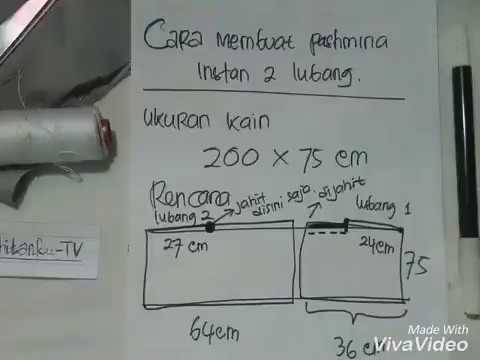 Cara membuat pashmina
Instan 2 lubang.
Ukuran kain
200 x 75 cm
Rencana
lubang 2
jahit
disini saja.
dijahit
lubang 1
27 cm
24cm
75
64cm
36 cm
hitanku-TV
Made With
VivaVideo